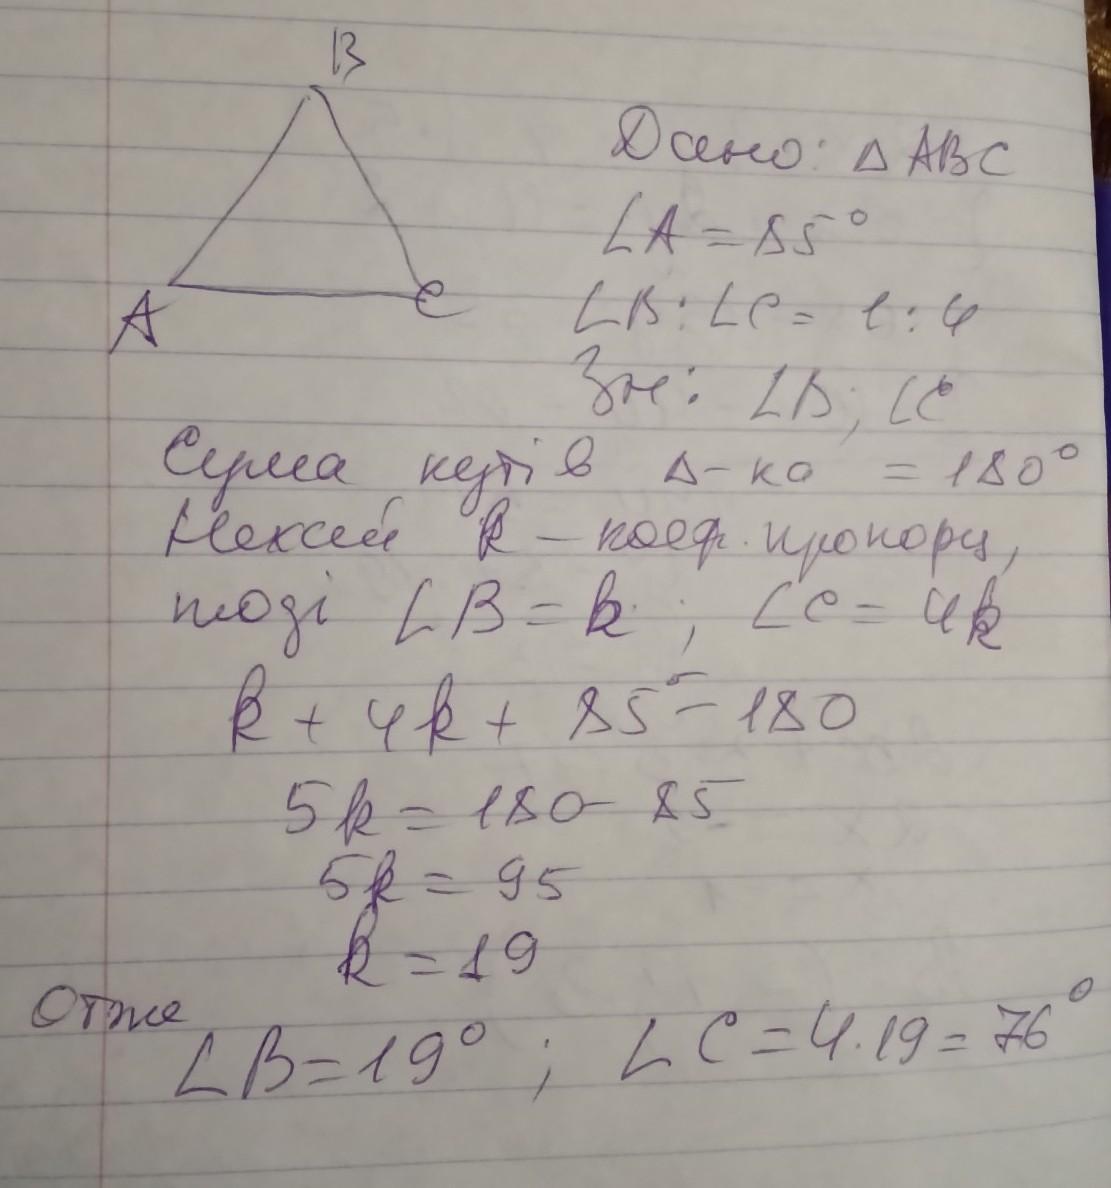 B
A
C
Дано: Δ ABC
∠A = 85°
∠B : ∠C = 1 : 4
Зн: ∠B; ∠C
Сума кутів Δ-ка = 180°
Нехай k – коеф. пропорц,
тоді ∠B = k ; ∠C = 4k
k + 4k + 85 = 180
5k = 180 - 85
5k = 95
k = 19
Отже
∠B = 19° ; ∠C = 4·19 = 76°